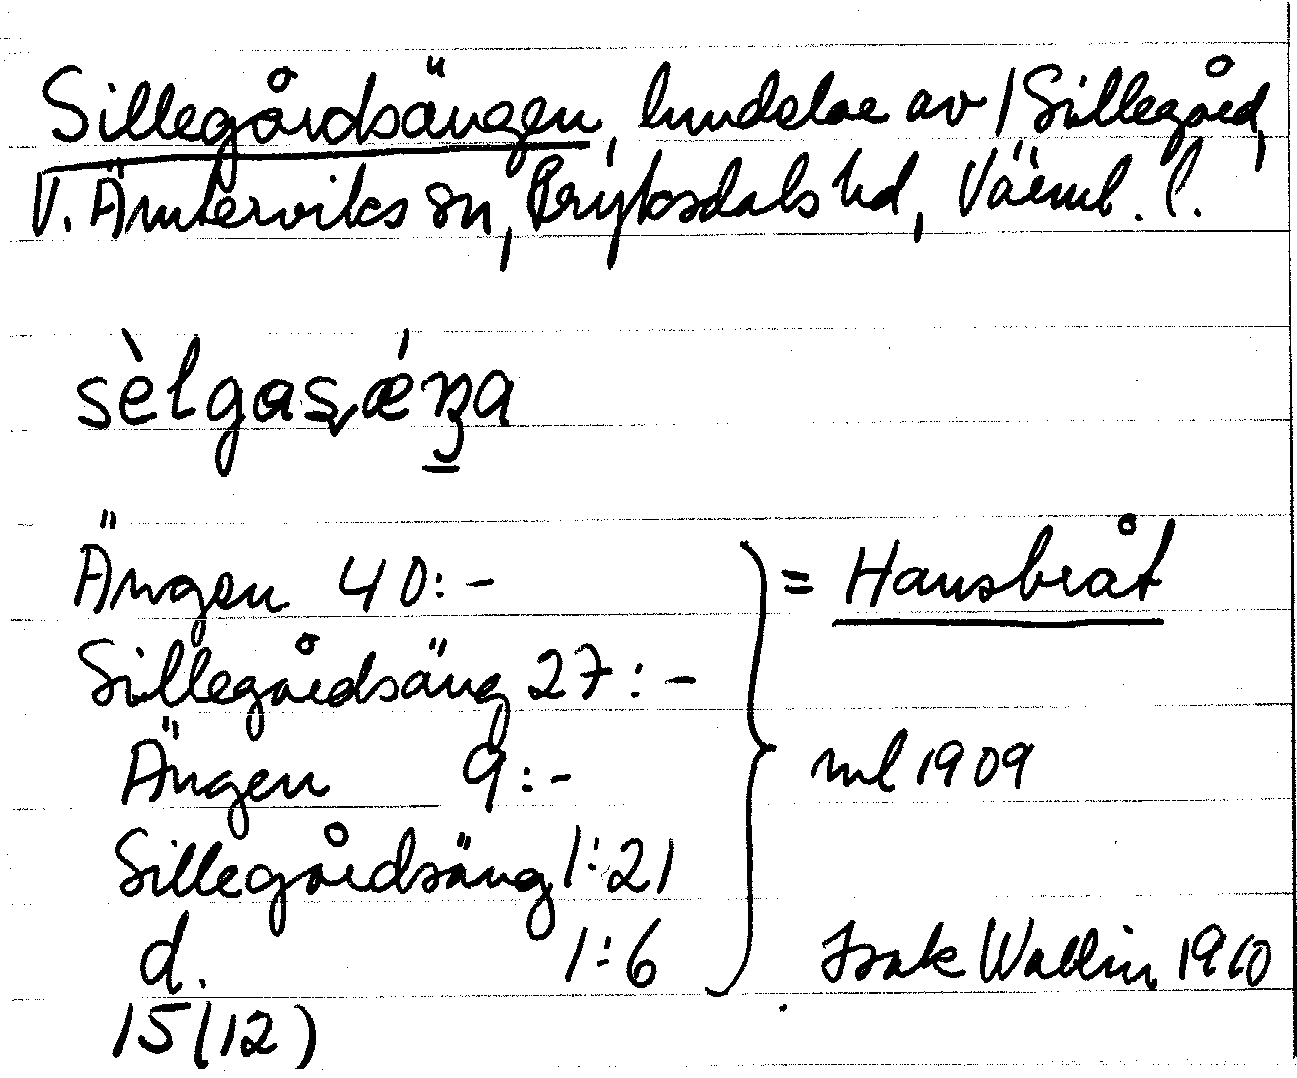 Sillegårdsängen, hmdelar av 1 Sillegård,
V. Ämterviks sn, Fryksdals hd, Värml. l.
sèlgasǽŋa
Ängen 40:-
= Hansbråt
Sillegårdsäng 27:-
Ängen 9:-
ml 1909
Sillegårdsäng 1:21
d. 1:6
Isak Wallin 1910
15(12)